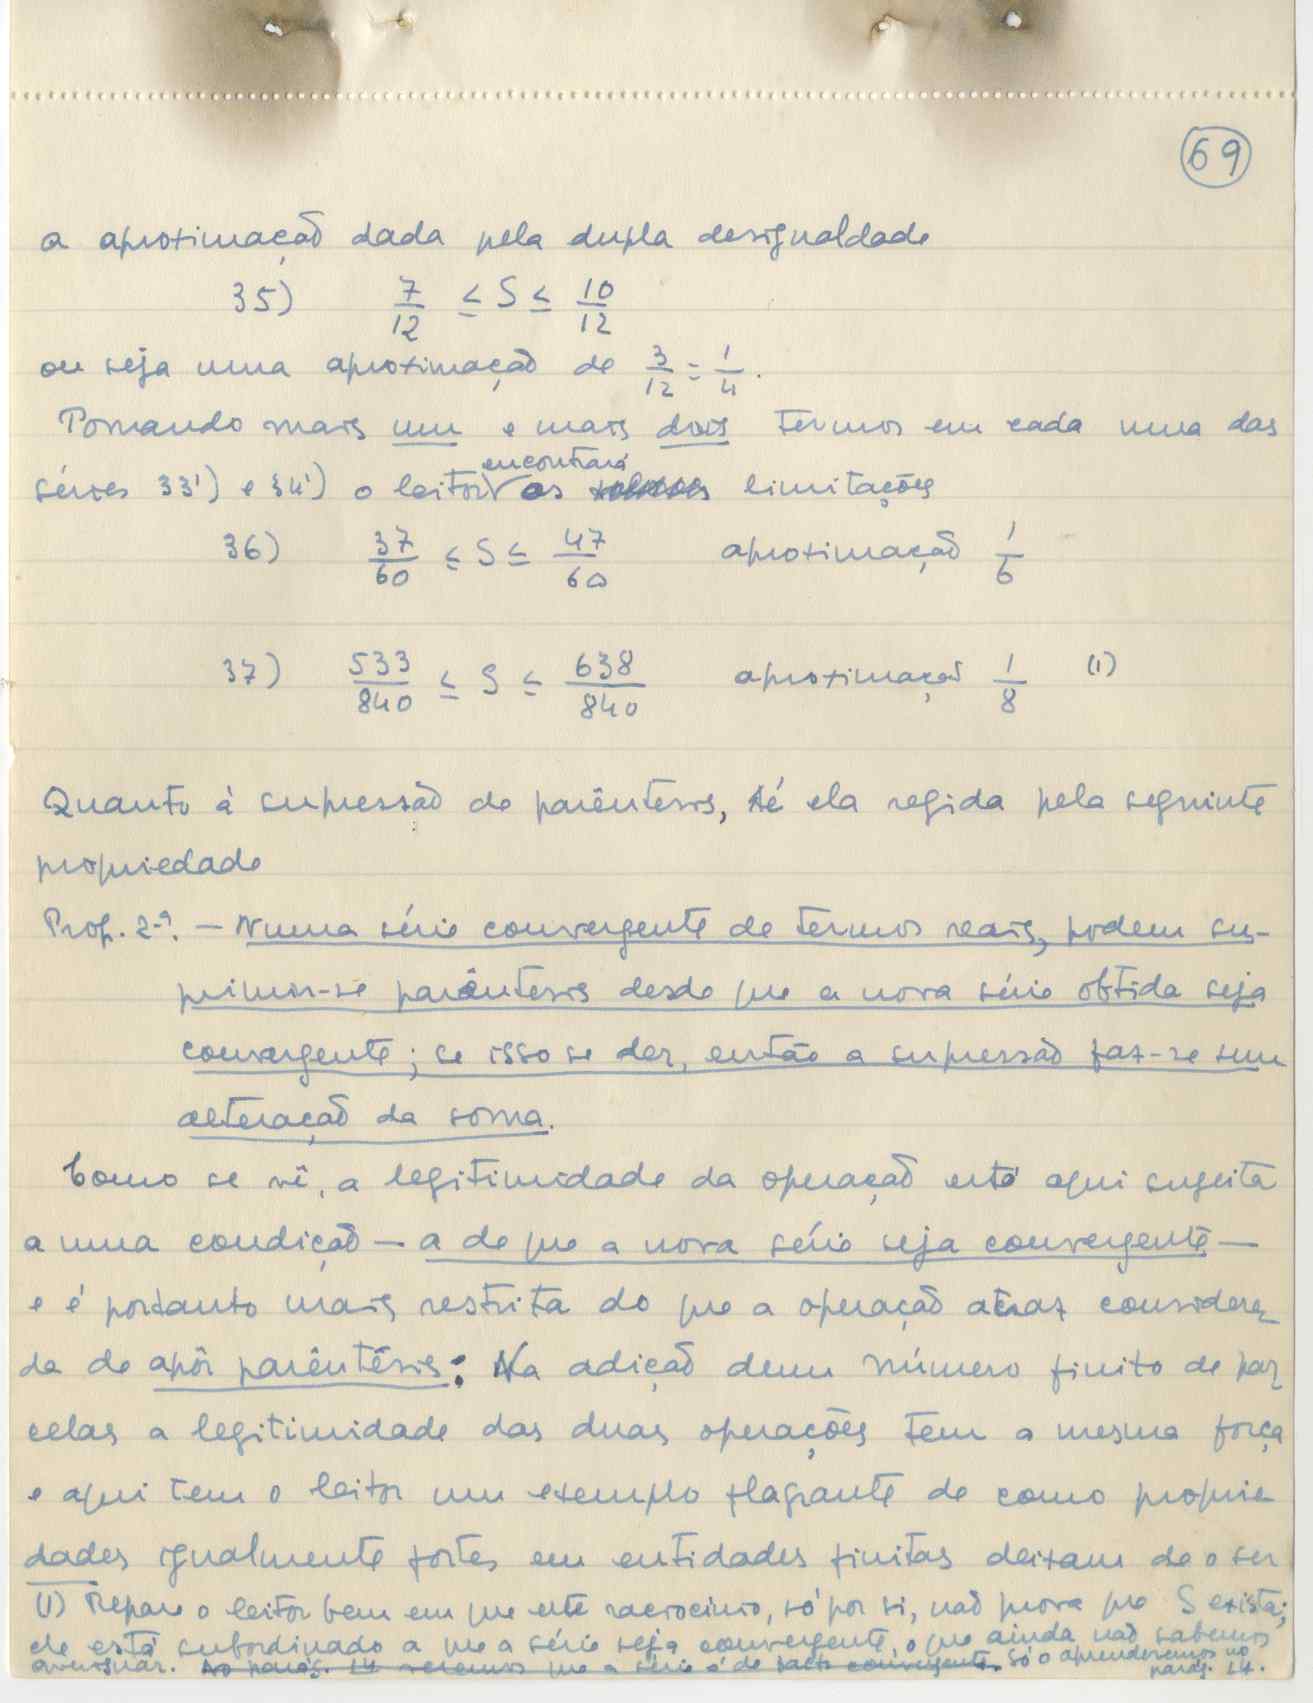 69
a aproximação dada pela dupla desigualdade
35) 7/12 ≤ S ≤ 10/12
ou seja uma aproximação de 3/12 = 1/4.
Tomando mais um e mais dois termos em cada uma das
encontrará
séries 33') e 34') o leitor os limitações
36) 37/60 ≤ S ≤ 47/60 aproximação 1/6
37) 533/840 ≤ S ≤ 638/840 aproximação 1/8 (1)
Quanto à supressão de parêntesis, é ela regida pela seguinte
propriedade
Prop. 2ª. — Numa série convergente de termos reais, podem su-
primir-se parêntesis desde que a nova série obtida seja
convergente; se isso se der, então a supressão faz-se sem
alteração da soma.
Como se vê, a legitimidade da operação está aqui sugeita
a uma condição — a de que a nova série seja convergente —
e é portanto mais restrita do que a operação atraz considera
da de apôr parêntêsis: Na adição dum número finito de par
celas a legitimidade das duas operações tem a mesma força
e aqui tem o leitor um exemplo flagrante de como proprie
dades igualmente fortes em entidades finitas deixam de o ser
(1) Repare o leitor bem em que este raciocínio, só por si, não prova que S exista;
ele está subordinado a que a série seja convergente, o que ainda não sabemos
averiguar. No parág. 14 veremos que a série é de facto convergente. Só o aprenderemos no
parág. 14.